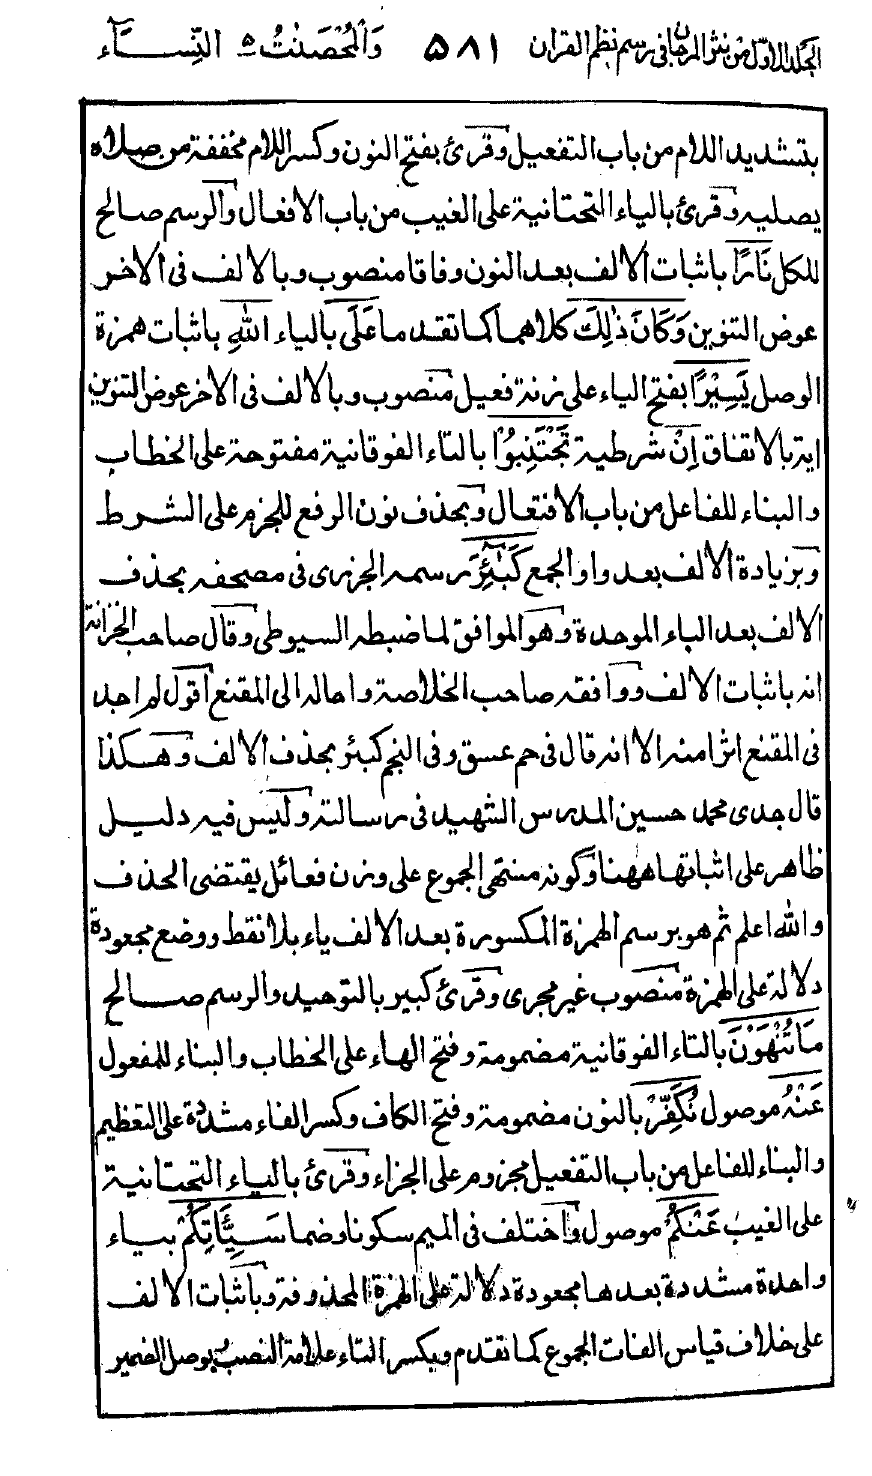 الجلد الاول من نثر المرجان فی رسم نظم القران ۵۸۱ وَالْمُحْصَنٰتُ ۵ النِّسَــآء
بتشدید اللام من باب التفعیل وقرئ بفتح النون وکسر اللام مخففة من صلاه
یصلیه وقرئ بالیاء التحتانیة علی الغیب من باب الافعال والرسم صالح
للکل نَارًا باثبات الالف بعد النون وفاقا منصوب وبالالف فی الاخر
عوض التنوین وَکَانَ ذٰلِكَ کلاهما کما تقدما عَلَی بالیاء اللّٰهِ باثبات همزة
الوصل یَسِیْرًا بفتح الیاء علی زنة فعیل منصوب وبالالف فی الاخر عوض التنوین
ایة بالاتفاق اِنْ شرطیة تَجْتَنِبُوْا بالتاء الفوقانیة مفتوحة علی الخطاب
والبناء للفاعل من باب الافتعال وبحذف نون الرفع للجزم علی الشرط
وبزیادة الالف بعد واو الجمع کَبٰٓئِرَ رسمه الجزری فی مصحفه بحذف
الالف بعد الباء الموحدة وهو الموافق لما ضبطه السیوطی وقال صاحب الخزانة
انه باثبات الالف ووافقه صاحب الخلاصة واحاله الی المقنع اقول لم اجد
فی المقنع اثرا منه الا انه قال فی حم عسق وفی النجم کبئر بحذف الالف وهکذا
قال جدی محمد حسین المدرس الشهید فی رسالته ولیس فیه دلیل
ظاهر علی اثباتها ههنا وکونه منتهی الجموع علی وزن فعائل یقتضی الحذف
والله اعلم ثم هو برسم الهمزة المکسورة بعد الالف یاء بلا نقط ووضع مجعودة
دلالة علی الهمزة منصوب غیر مجری وقرئ کبیر بالتوحید والرسم صالح
مَا تُنْهَوْنَ بالتاء الفوقانیة مضمومة وفتح الهاء علی الخطاب والبناء للمفعول
عَنْهُ موصول نُکَفِّرْ بالنون مضمومة وفتح الکاف وکسر الفاء مشددة علی التعظیم
والبناء للفاعل من باب التفعیل مجزوم علی الجزاء وقرئ بالیاء التحتانیة
علی الغیب عَنْکُمْ موصول واختلف فی المیم سکونا وضما سَیِّئَاتِکُمْ بیاء
واحدة مشددة بعدها مجعودة دلالة علی الهمزة المحذوفة وباثبات الالف
علی خلاف قیاس الفات الجموع کما تقدم وبکسر التاء علامة النصب بوصل الضمیر